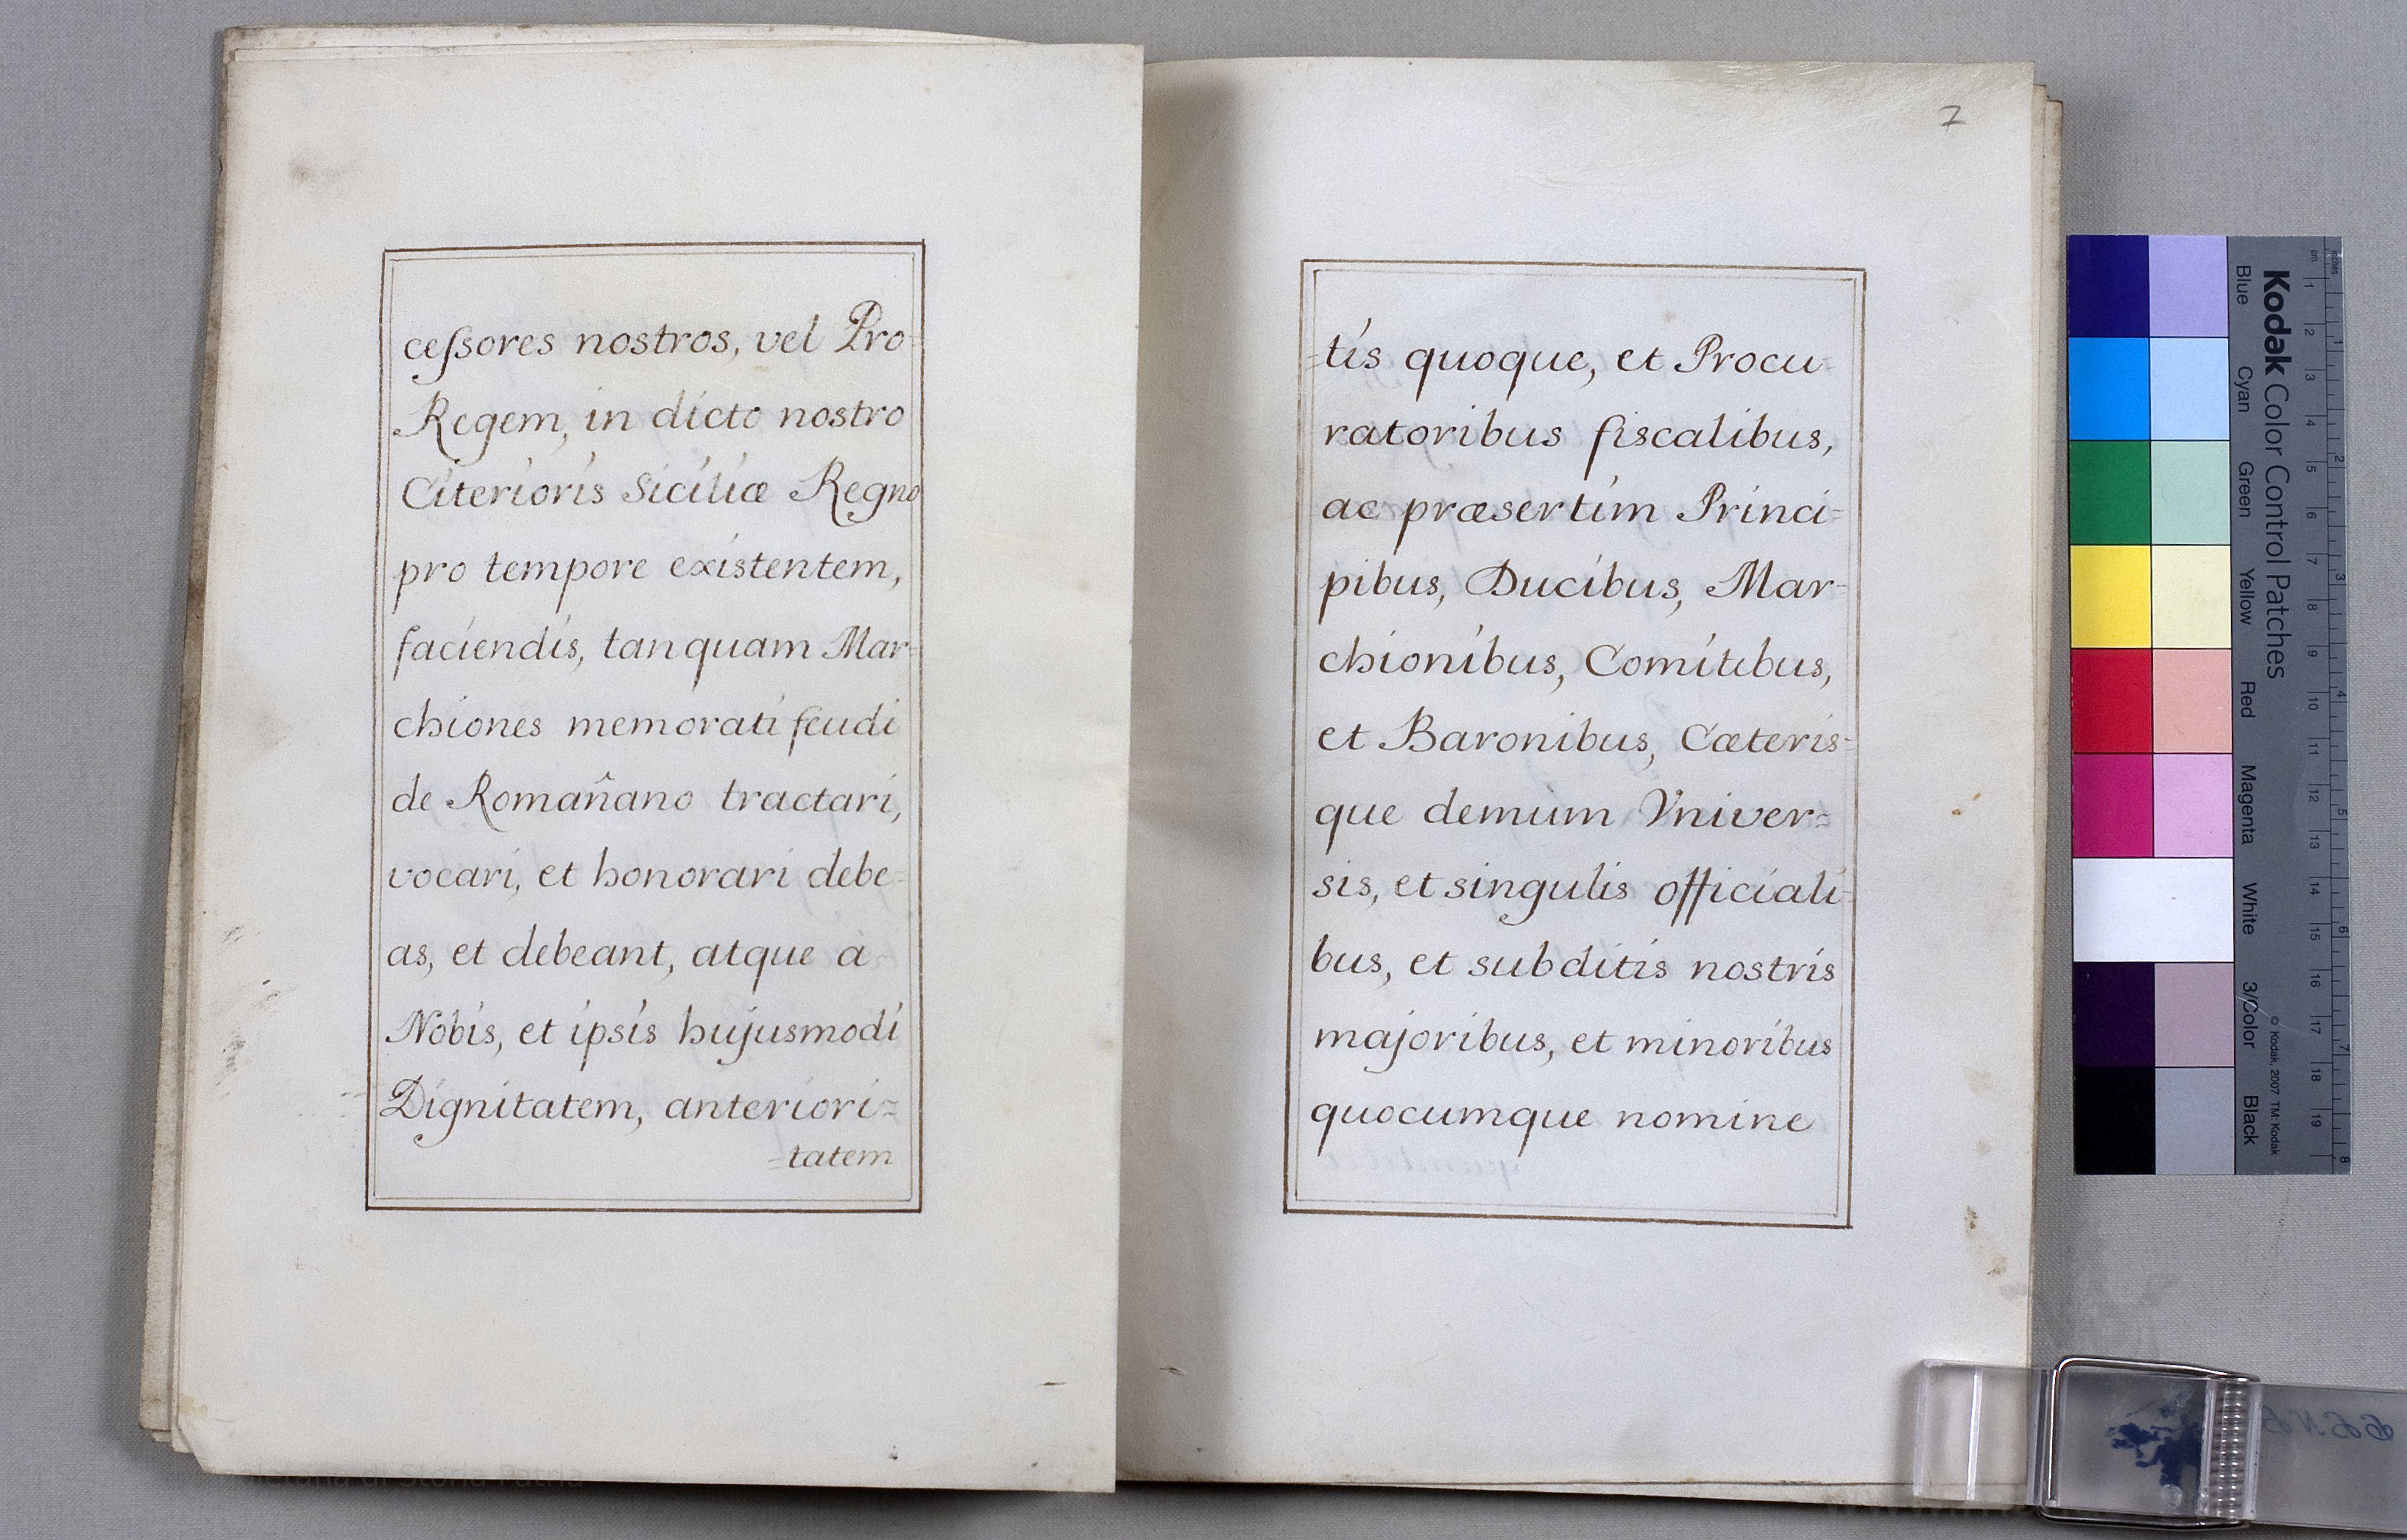 ceſsores nostros, vel Pro-
Regem, in dicto nostro
Citerioris Siciliæ Regno
pro tempore existentem,
faciendis, tanquam Mar-
chiones memorati feudi
de Romañano tractari,
vocari, et honorari debe-
as, et debeant, atque à
Nobis, et ipsis hujusmodi
Dignitatem, anteriori=
=tatem
7
=tis quoque, et Procu-
ratoribus fiscalibus,
ac præsertim Princi=
pibus, Ducibus, Mar-
chionibus, Comitibus,
et Baronibus, Cæteris=
que demum Vniver=
sis, et singulis officiali-
bus, et subditis nostris
majoribus, et minoribus
quocumque nomine
Kodak Color Control Patches
Blue Cyan Green Yellow Red Magenta White 3/Color Black
© Kodak, 2007 TM: Kodak
inches 1 2 3 4 5 6 7 8
cm 1 2 3 4 5 6 7 8 9 10 11 12 13 14 15 16 17 18 19
di Storia Patria